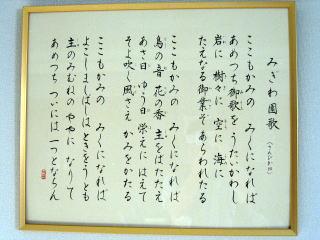 みぎわ園歌
(さんびか90)
ここもかみの みくになれば
あめつち御歌を うたいかわし
岩に 樹々に 空に 海に
たえなる御業ぞ あらわれたる
ここもかみの みくになれば
鳥の音 花の香 主をばたたえ
あさ日 ゆう日 栄えに はえて
そよ吹く風さえ かみをかたる
ここもかみの みくになれば
よこしましばしは ときをうとも
主のみむねの ややに なりて
あめつち ついには 一つとならん